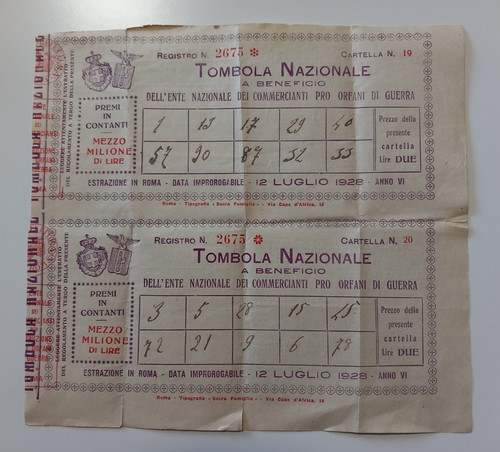 REGISTRO N. 2675 CARTELLA N. 19
TOMBOLA NAZIONALE
A BENEFICIO
DELL'ENTE NAZIONALE DEI COMMERCIANTI PRO ORFANI DI GUERRA
PREMI
IN
CONTANTI
MEZZO
MILIONE
DI LIRE
1 13 17 29 40
57 90 87 52 55
Prezzo della
presente
cartella
Lire DUE
ESTRAZIONE IN ROMA - DATA IMPROROGABILE - 12 LUGLIO 1928 - ANNO VI
Roma - Tipografia «Sacra Famiglia» - Via Capo d'Africa,
LEGGERE ATTENTAMENTE L'ESTRATTO
DEL REGOLAMENTO A TERGO DELLA PRESENTE
TOMBOLA NAZIONALE
REGISTRO N. 2675 CARTELLA N. 20
TOMBOLA NAZIONALE
A BENEFICIO
DELL'ENTE NAZIONALE DEI COMMERCIANTI PRO ORFANI DI GUERRA
PREMI
IN
CONTANTI
MEZZO
MILIONE
DI LIRE
3 5 28 15 45
72 21 9 6 78
Prezzo della
presente
cartella
Lire DUE
ESTRAZIONE IN ROMA - DATA IMPROROGABILE - 12 LUGLIO 1928 - ANNO VI
Roma - Tipografia «Sacra Famiglia» - Via Capo d'Africa,
LEGGERE ATTENTAMENTE L'ESTRATTO
DEL REGOLAMENTO A TERGO DELLA PRESENTE
TOMBOLA NAZIONALE